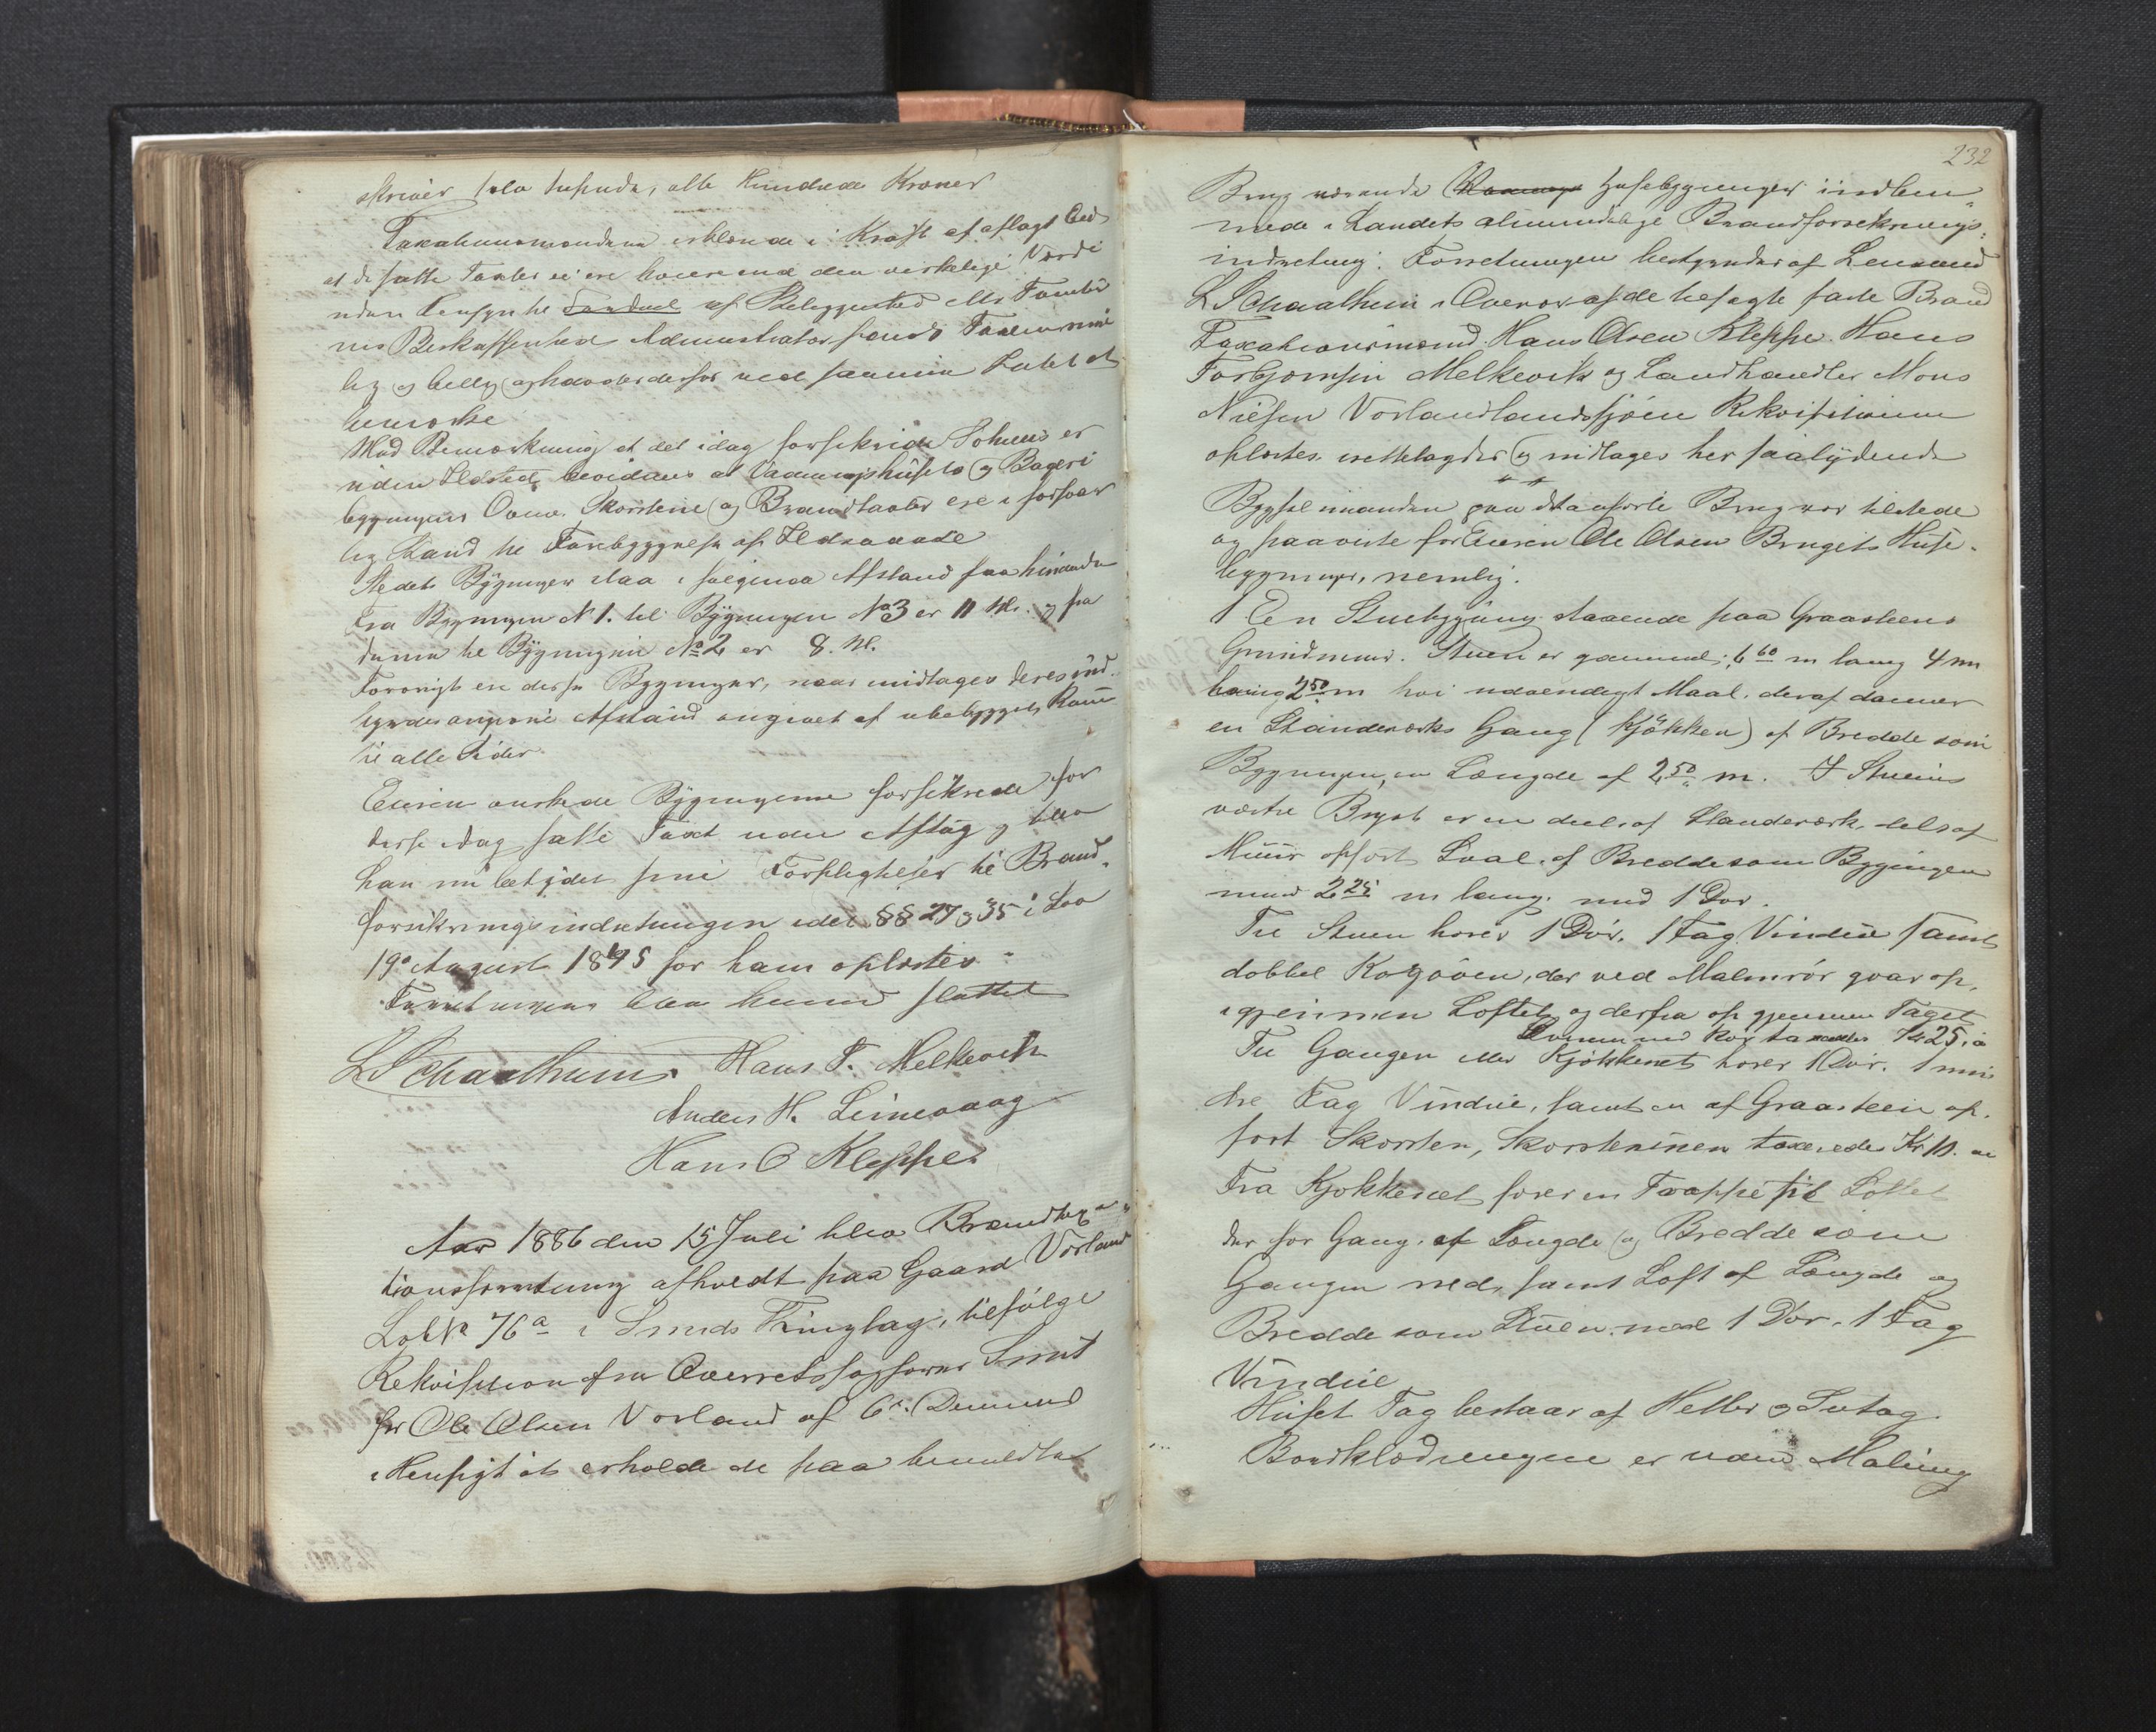 skriver tolv tusende, otte Hundrede Kroner
Taxationsmændene erklærede i Kraft af aflagt Eed
at de satte Taxter ei ere høiere end den virkelige Værdi
uden Hensyn til Beliggenhed eller Tomtens
Beskaffenhed Administrator fandt Taxterne rime
lig og billig og havde derfor ved samme Intet at
bemærke
Med Bemærkning at det idag forsikrede Søhuus er
uden Ildsted, bevidnes at Vaaningshusets og Bageri
bygningens Ovne, Skorstene og Brandtavter ere i forsvar
lig Stand til Forebyggelse af Ildsvaade
Stedets Bygninger staa i følgende Afstand fra hinanden
Fra Bygningen No 1. til Bygningen No 3 er 11 M. og fra
denne til Bygningen No 2 er 8. M.
Forøvrigt ere disse Bygninger, naar undtages deres ind-
byrdes angivne Afstand omgivet af ubebygget Rum
til alle Sider.
Eieren ønskede Bygningerne forsikrede for
disse idag satte Taxt uden Afslag og blev
han nu betydet sine Forpligtelser til Brand-
forsikringsindretningen idet §§ 27 og 35 i Lov
19de August 1845 for ham oplæstes -
Forretningen blev hermed sluttet
L Schaathun Hans T. Melkevik
Anders H. Leinevaag
Hans O Kleppe
Aar 1886 den 15 Juli blev Brandtaxa-
tionsforretning afholdt paa Gaard Vorland
Lob No 76a i Sunds Thinglag, tilfølge
Rekvisition fra Overretssagfører Smit
for Ole Olsen Vorland af 6te Dennes
i Hensigt at erholde de paa bemeldte
232
Brug værende Husebygninger indlem-
mede i Landets almindelige Brandforsikrings-
indretning. Forretningen bestyredes af Lensmand
L Schaathun i Overvær af de besagte faste Brand
Taxationsmænd. Hans Olsen Kleppe. Hans
Torbjørnsen Melkevik og Landhandler Mons
Nilsen Vorlandsjøen Rekvisitionen
oplæstes irettelagdes og indtages her saalydende
Bygselmanden paa det anførte Brug var tilstede
og paaviste for Eieren Ole Olsen Brugets Huse-
bygninger, nemlig.
1 En Stuebygning staaende paa Graasteens
Grundmuur. Stuen er gammel; 6 60 m lang 4 m
2 50 m høi udvendigt Maal. deraf danner
en Standeværks Gang (Kjøkken) af Bredde som
Bygningen, en Længde af 2,50 m. I Stuens
vestre Bryst er en deels af Standeværk, dels af
Muur opført Sval. af Bredde som Bygningen
med 2 25 m lang. med 1 Dør.
Til Stuen hører 1 Dør, 1 Fag Vindue samt
dobbel Kogøven, der ved Malmrør gaar op
igjennem Loftet og derfra op gjennem Taget
Ovnen med Rør taxeredes Kr 25,"
Til Gangen eller Kjøkkenet hører 1 Dør. 1 min
dre Fag Vindue, samt en af Graasteen op-
ført Skorsten, Skorstenen taxeredes Kr 10.
Fra Kjøkkenet fører en Trappe til Loftet
der før Gang. af Længde og Bredde som
Gangen ned, samt Loft af Længde og
Bredde som Stuen, med 1 Dør. 1 Fag
Vindue
Huset Tag bestaar af Heller og Sutag.
Bordklædningen er uden Maling